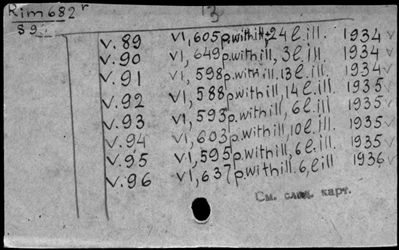 Rim 682 r 13
S 9
v.89 VI, 605 p. with ill + 24 l. ill. 1934 v
v.90 VI, 649 p. with ill, 3 l. ill 1934 v
v.91 VI, 598 p. with ill. 13 l. ill. 1934 v
v.92 VI, 588 p. with ill, 14 l. ill. 1935 v
v.93 VI, 593 p. with ill, 6 l. ill 1935 v
v.94 VI, 603 p. with ill, 10 l. ill. 1935 v
v.95 VI, 595 p. with ill, 6 l. ill. 1935 v
v.96 VI, 637 p. with ill. 6 l. ill 1936 v
См. след. карт.